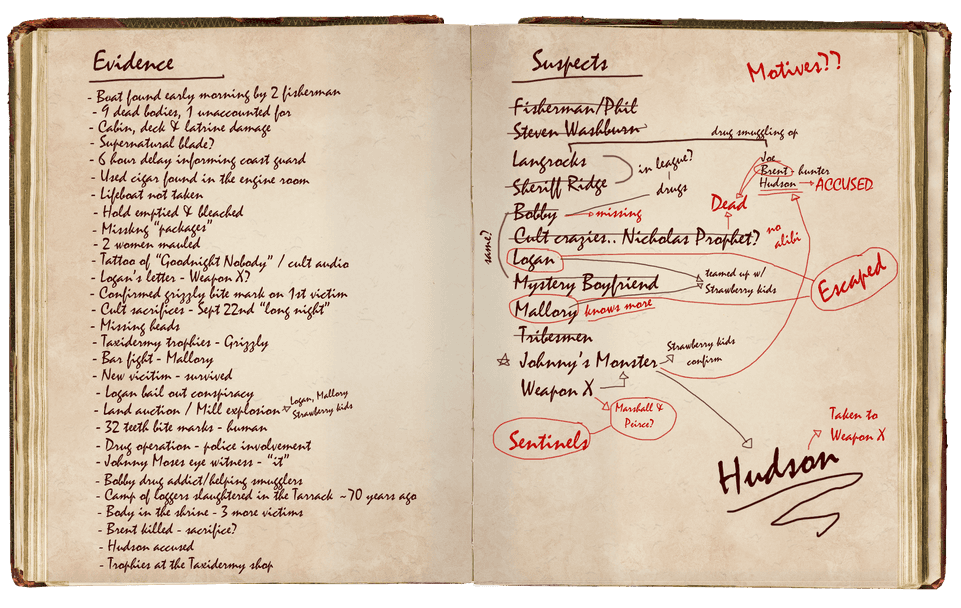 Evidence
- Boat found early morning by 2 fisherman
- 9 dead bodies, 1 unaccounted for
- Cabin, deck & latrine damage
- Supernatural blade?
- 6 hour delay informing coast guard
- Used cigar found in the engine room
- Lifeboat not taken
- Hold emptied & bleached
- Misskng "packages"
- 2 women mauled
- Tattoo of "Goodnight Nobody" / cult audio
- Logan's letter - Weapon X?
- Confirmed grizzly bite mark on 1st victim
- Cult sacrifices - Sept 22nd "long night"
- Missing heads
- Taxidermy trophies - Grizzly
- Bar fight - Mallory
- New vicitim - survived
- Logan bail out conspiracy
- Land auction / Mill explosion
Logan, Mallory
Strawberry kids
- 32 teeth bite marks - human
- Drug operation - police involvement
- Johnny Moses eye witness - "it"
- Bobby drug addict/helping smugglers
- Camp of loggers slaughtered in the Tarrack ~70 years ago
- Body in the shrine - 3 more victims
- Brent killed - sacrifice?
- Hudson accused
- Trophies at the Taxidermy shop
Suspects
Motives??
Fisherman/Phil
Steven Washburn
drug smuggling op
Langrocks
in league?
Joe
Sheriff Ridge
drugs
Brent - hunter
Hudson
ACCUSED
Bobby
missing
Dead
same?
Cult crazies.. Nicholas Prophet?
no
alibi
Logan
Mystery Boyfriend
teamed up w/
Strawberry kids
Escaped
Mallory
knows more
Tribesmen
Johnny's Monster
Strawberry kids
confirm
Weapon X
Marshall &
Peirce?
Sentinels
Taken to
Weapon X
Hudson